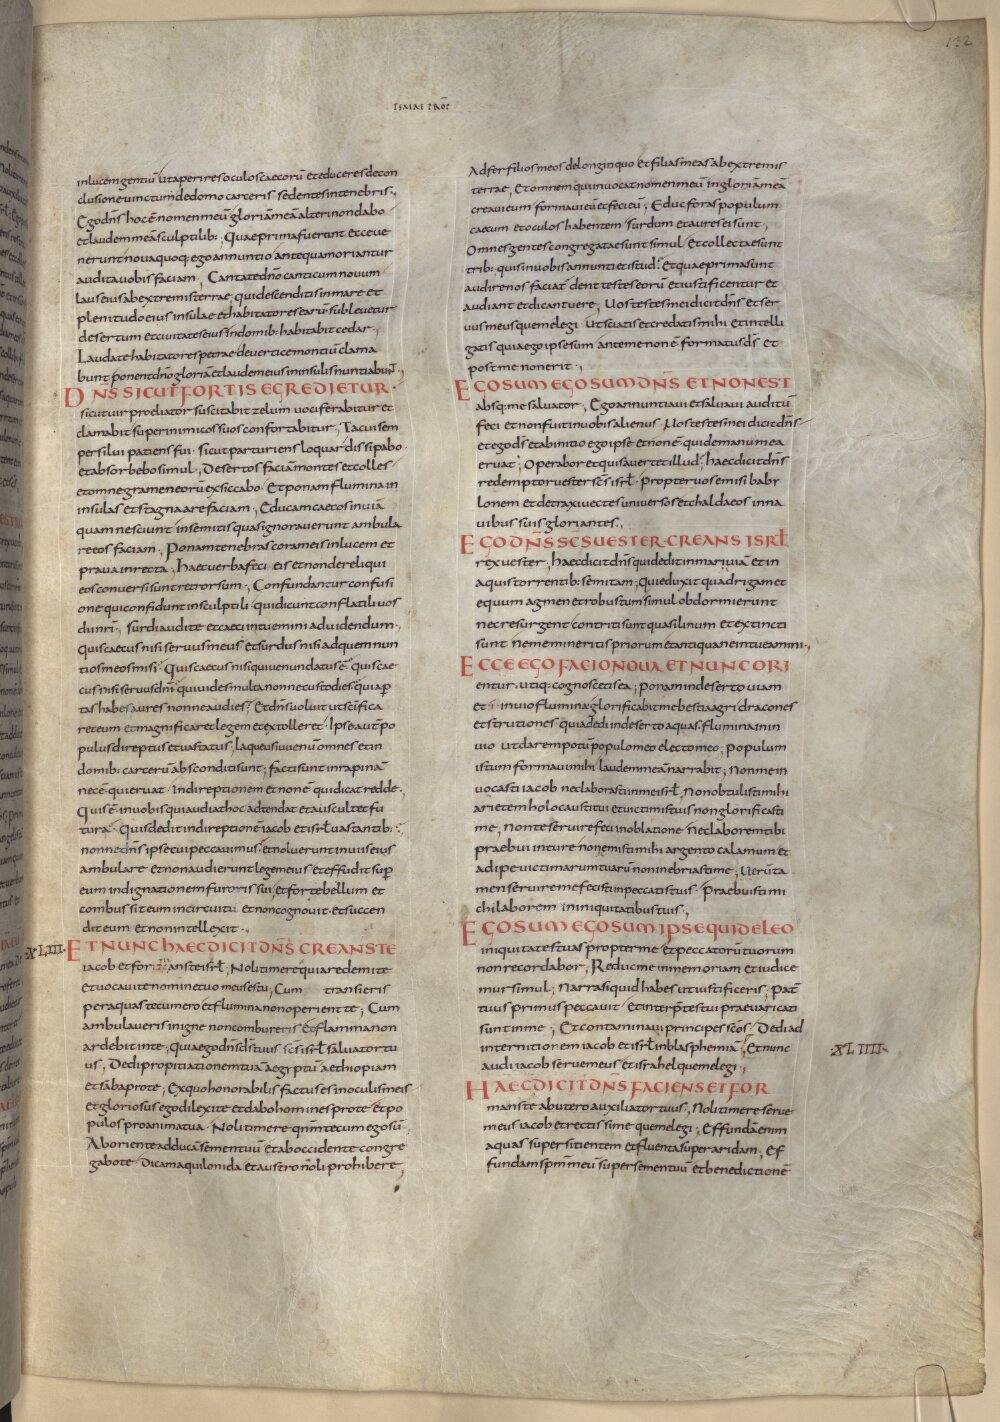 132
ISAIAE PROF
inlucemgentiū Utaperiresoculoscaecorū eteduceresdecon
clusioneuinctumdedomocarceris sedentesintenebris;
Egodn̄s hocē nomenmeū gloriāmeā alterinondabo
etlaudemmeā sculptilib: Quaeprimafuerunt ecceue
neruntnouaquoq; egoannuntio antequamoriantur
auditauobisfaciam; Cantatedn̄o canticumnouum
lauseiusabextremisterrae quidescenditisinmare et
plenitudoeius insulae ethabitatoresearū subleuetur
desertum etciuitateseius indomib: habitabit cedar;
Laudatehabitatorespetrae deuerticemontiū clama
bunt ponentdn̄ogloriā etlaudemeiusininsulisnuntiabunt
DN̄S SICUT FORTIS EGREDIETUR
sicutuir proeliator suscitabit zelum uociferabitur et
clamabit superinimicossuosconfortabitur; Tacuisem
persilui patiensfui sicutparturiensloquar dissipabo
etabsorbebosimul; Desertos faciāmontes etcolles
etomnegrameneorū exsiccabo Etponamfluminain
insulas etstagnaarefaciam; Educamcaecosinuiā
quamnesciunt insemitisquasignorauerunt ambula
reeosfaciam; Ponamtenebrascorameisinlucem et
prauainrecta; haecuerbafeci eis etnondereliqui
eosconuersisuntretrorsum; Confundanturconfusi
onequiconfiduntinsculptili quidicuntconflatiliuos
diinr̄i; surdiaudite etcaeciintuemini aduidendum
Quiscaecusnisiseruusmeus etsurdusnisiadquemnun
tiosmeosmisi Quiscaecusnisiquiuenundatusē quiscae
cusnisiseruusdn̄i quiuidesmultanonnecustodies quiap̄
tashabesaures nonneaudies Etdn̄s uoluitutscifica
reteum etmagnificaretlegem etextolleret Ipseaut̄ po
pulusdireptus etuastatus; laqueusiuuenū omnes etin
domib: carcerū absconditisunt; factisuntinrapinā
necē quieruat Indireptionem etnonē quidicatredde
Quisē inuobisquiaudiathoc adtendat etauscultetfu
tura Quisdeditindireptionē iacob etisrl̄ uastantib:
nonnedn̄s ipsecuipeccauimus etnolueruntinuiiseius
ambulare etnonaudierunt legemeius eteffuditsup̄
eum indignationemfurorissui etfortebellum et
combussiteumincircuitu etnoncognouit etsuccen
diteum etnonintellexit
XLIII
ET NUNC HAEC DICIT DN̄S CREANSTE
iacob etformansteisrl̄; Nolitimerequiaredemite
etuocauitenominetuo meusestu; Cum transieris
peraquastecumero etfluminanonoperiente; Cum
ambulauerisinigne noncombureris etflammanon
ardebitinte, quiaegodn̄sd̄stuus sc̄s isrl̄ saluatortu
us; Dedipropitiationemtuāaegyptū aethiopiam
etsabaprote; Exquohonorabilis factusesinoculismeis
etgloriosus egodilexite etdabohominesprote etpo
pulosproanimatua Nolitimere qm̄tecumegosū
Aborienteadducāsementuū etaboccidente congre
gabote Dicamaquilonida etaustronoliprohibere;
Adferfiliosmeosdelonginquo etfiliasmeasabextremis
terrae, Etomnemquiinuocatnomenmeū ingloriāmeā
creauieum formauieū etfecieū; Educforaspopulum
caecum etoculos habentem surdum etaureseisunt;
Omnesgentescongregataesuntsimul Etcollectaesunt
trib: quisinuobisannuntietistud Etquaeprimasunt
audirenosfaciat denttesteseorū etiustificentur et
audiant etdicantuere; Uostestesmeidicitdn̄s etser
uusmeusquemelegi Utsciatis etcredatismihi etintelli
gatis quiaegoipsesum antemenonē formatusd̄s et
postmenonerit;
EGOSUM EGOSUM DN̄S ET NON EST
absq:mesaluator; Egoannuntiaui etsaluaui auditū
feci etnonfuitinuobisalienus Uostestesmeidicitdn̄s
etegods̄ etabinitioegoipse etnonē quidemanumea
eruat; Operabor etquisauertetillud; haecdicitdn̄s
redemptoruester sc̄s isrl̄ Propteruosemisi baby
lonem etdetraxiuectesuniuersos etchaldaeos inna
uibus suisgloriantes;
EGO DN̄S SC̄S UESTER CREANS ISRL̄
rexuester, haecdicitdn̄squideditinmariuiā etin
aquistorrentib: semitam; Quieduxitquadrigam et
equum agmen etrobustum simulobdormierunt
necresurgent contritisuntquasilinum etextincti
sunt nememineritispriorum etantiquaneintueamini;
ECCE EGO FACIO NOUA ET NUNC ORI
entur utiq: cognoscetisea; ponamindesertouiam
et inuioflumina glorificabitmebestiaagri dracones
etstrutiones quiadediindesertoaquas fluminainin
uio utdarempotūpopulomeo electomeo; populum
istum formauimihi laudemmeānarrabit; Nonmein
uocasti iacob neclaborastiinmeisrl̄, Nonobtulistimihi
arietemholocaustitui etuictimistuis nonglorificasti
me; Nonteseruirefeciinoblatione neclaboremtibi
praebuiinture nonemistimihi argento calamum et
adipeuictimarumtuarū noninebriastime; Uerūta
menseruiremefecistiinpeccatistuis praebuistimi
chilaborem ininiquitatibustuis;
EGOSUM EGOSUM IPSE QUI DELEO
iniquitatestuaspropterme etpeccatorūtuorum
nonrecordabor; Reducmeinmemoriam etiudice
mursimul; Narrasiquidhabes utiustificeris; Pat̄
tuus primuspeccauit Etinterp̄testui praeuaricati
suntinme; Etcontaminauiprincipes sc̄os Dediad
internitionem iacob etisrl̄inblasphemiā; Etnunc
audiiacob seruemeus etisrahelquemelegi;
XLIIII
HAEC DICIT DN̄S FACIENS ET FOR
manste abutero auxiliatortuus; Nolitimereserue
meusiacob etrectissime quemelegi; Effundāenim
aquas supersitientem etfluentasuperaridam; Ef
fundamsp̄mmeū supersementuū etbenedictionē